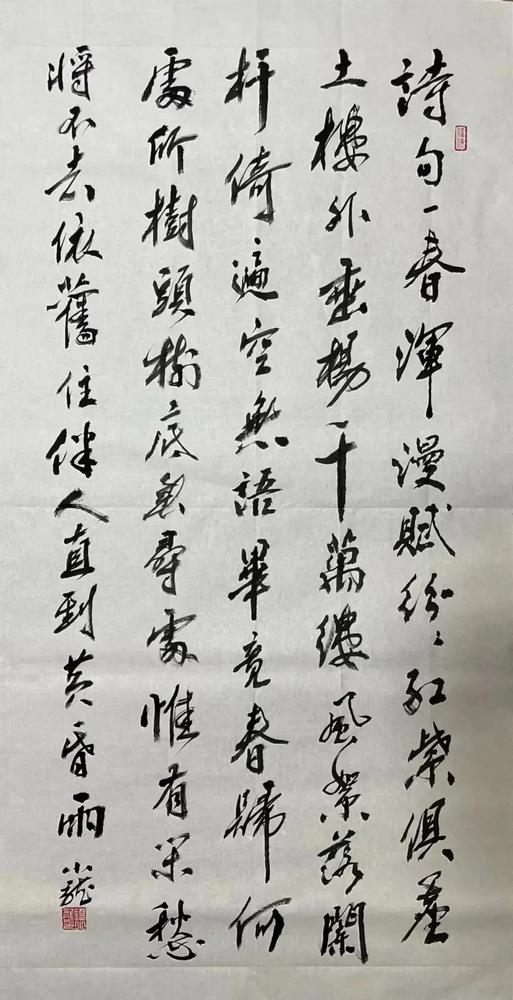 詩句一春渾漫賦紛〻紅紫俱塵
土樓外垂楊千萬縷風絮落闌
杆倚遍空無語畢竟春歸何
處所樹頭樹底無尋處惟有閑愁
將不去依舊住伴人直到黃昏雨
小龍